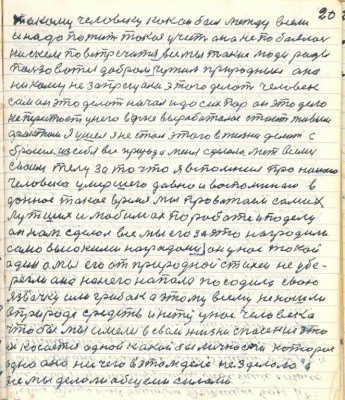 20
такому человеку как он был между всем
и надо пожит такая учеть она не побоялас
ни с кем повстречатся, вы мы такие люди рады
пользоватся добром чужим природным она
никому не запрещала этого делат человек
сам он это делат начал и до сих пор он это дело
у него одна выработалас стоит живым
фактом Я ушел я не стал этого в жизни делат с
бросил из себя все природа меня сделала Всему
своему телу за то что я вспомнил про нашего
человека умершего давно и воспоминаю в
данное такое время мы провожаем самих
лутших и любимых по работе и по делу
он нам сделал все мы его за это наградили
само высокими наградами, он у нас такой
один а мы его от природной стихии не убе-
регли она на него напала посодила свою
язвочку или грибок а этому всему не нашли
в природе средств и нету у нас человека
чтобы мы имели в своей жизни спасение это
и касается одной какой бы личности которая
одна она ничего в этом деле не зделала а
все мы делали общеми силами